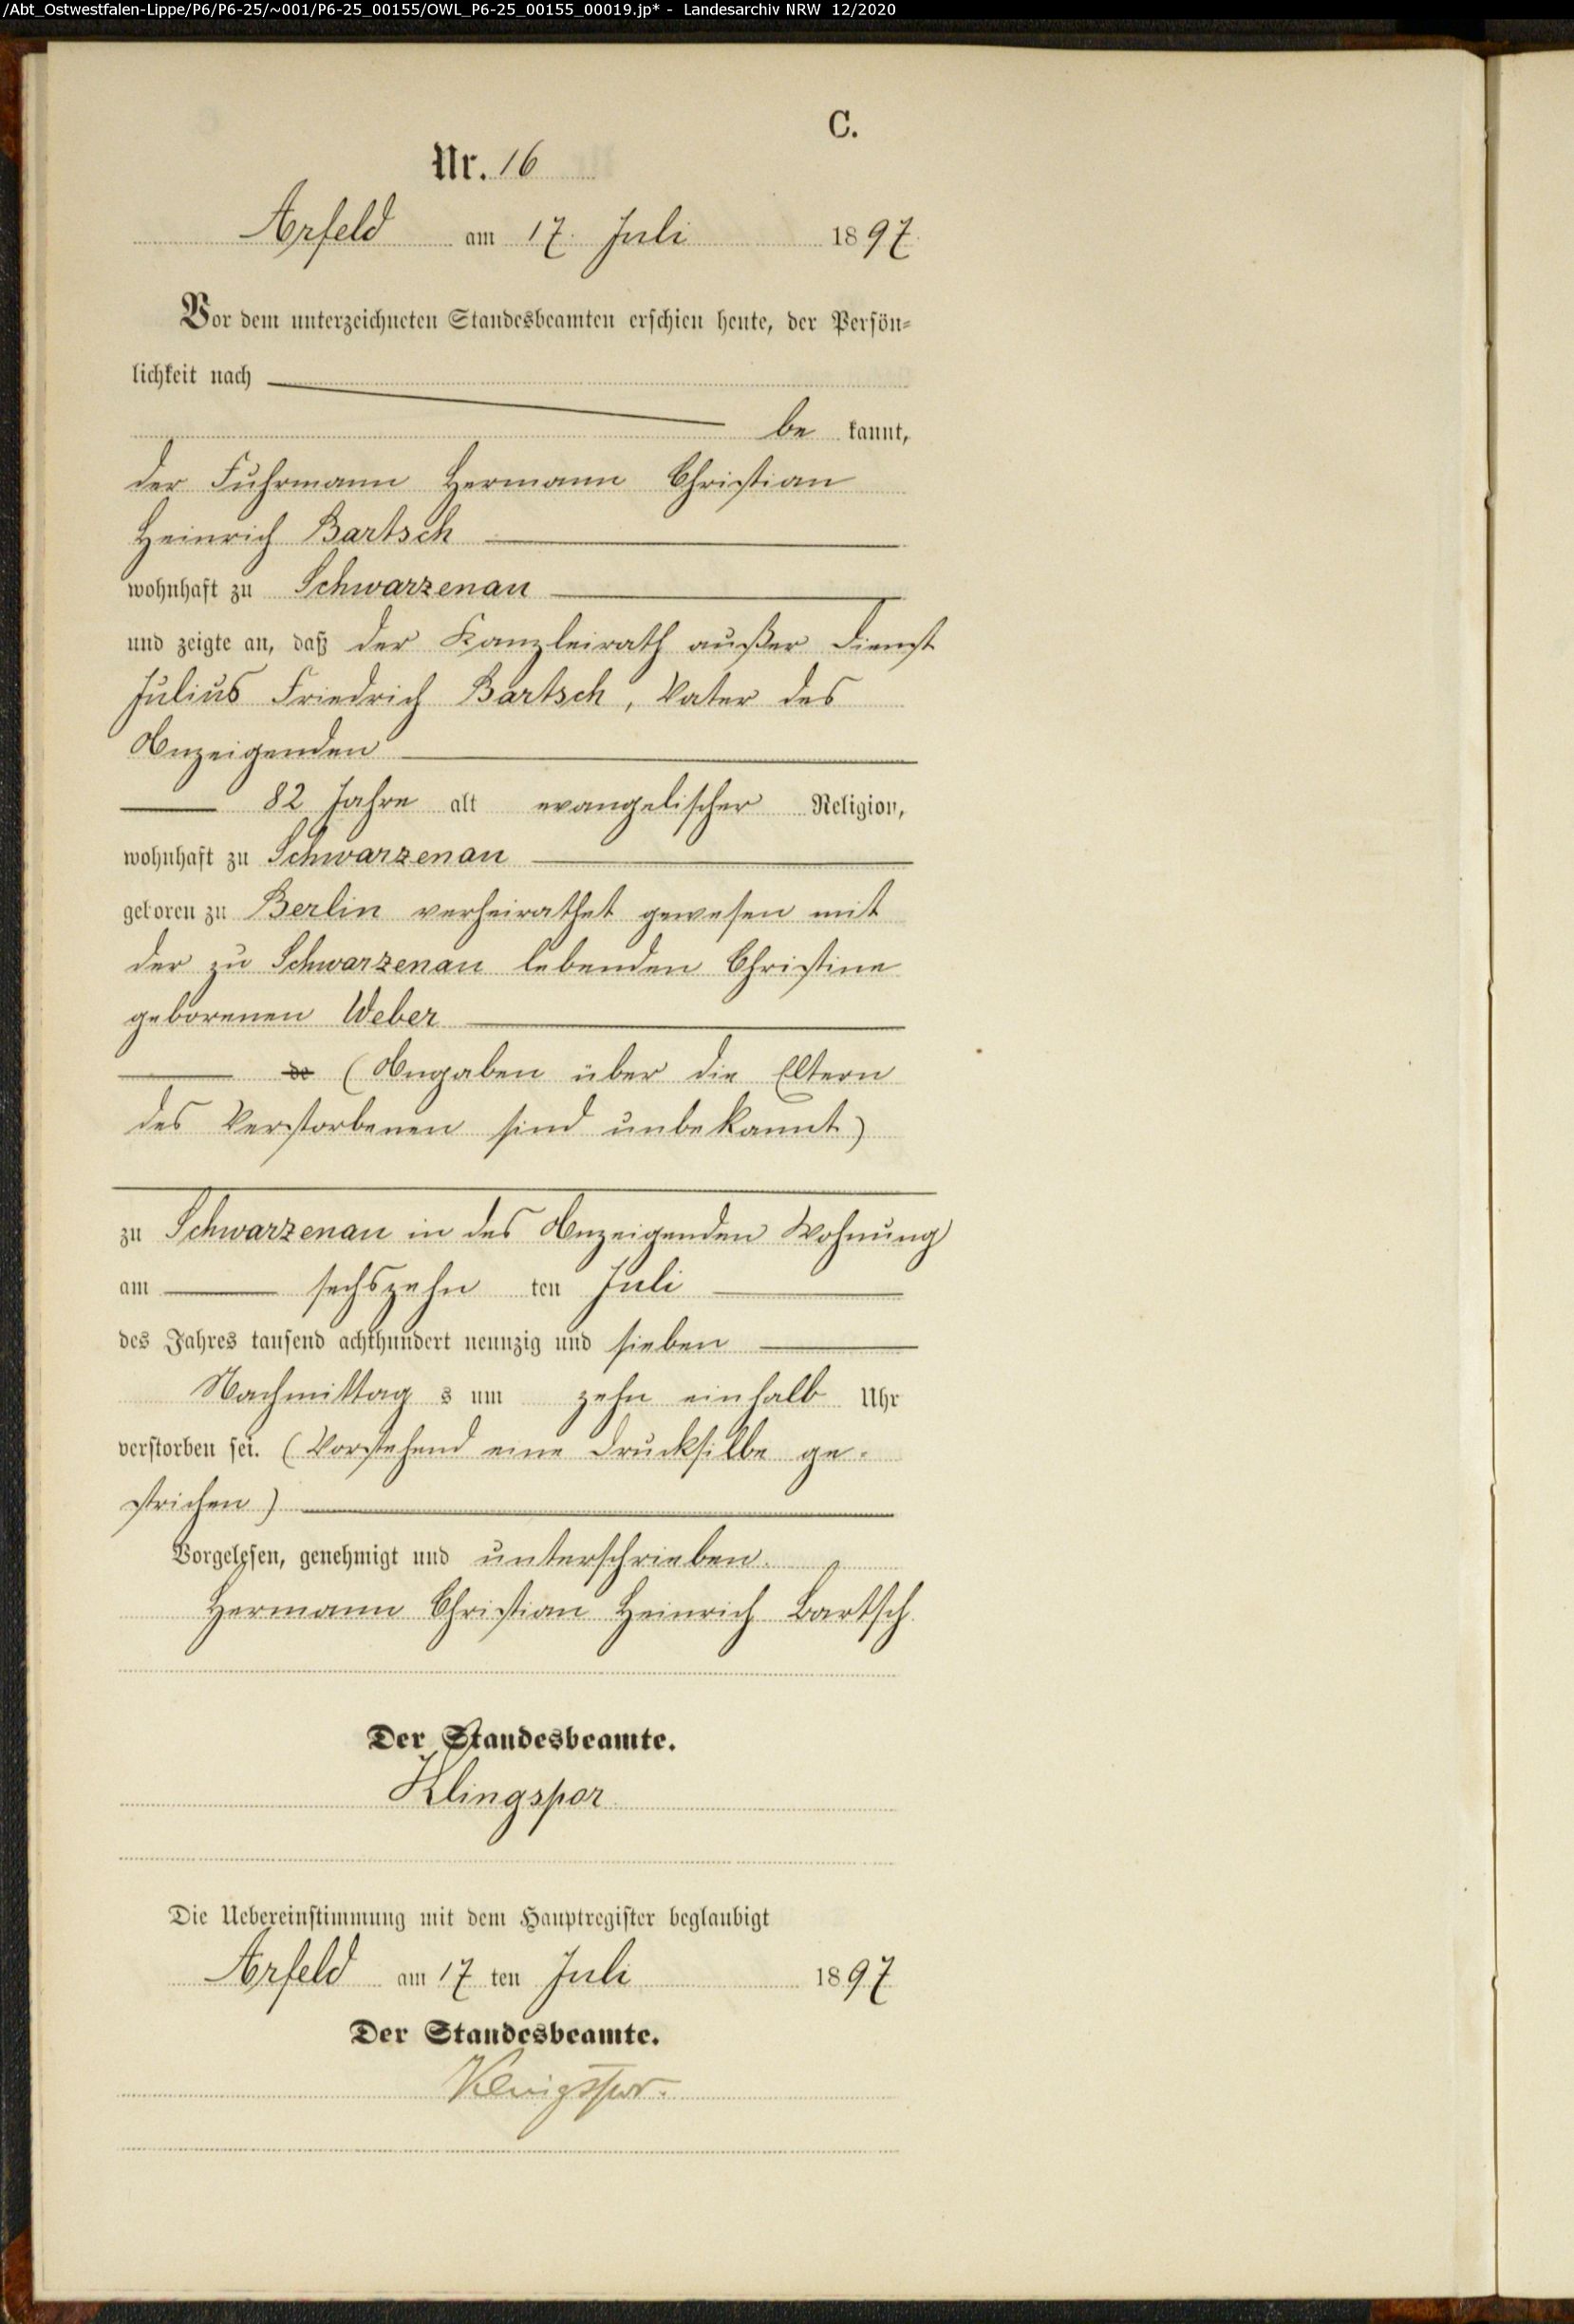 /Abt_Ostwestfalen-Lippe/P6/P6-25/~001/P6-25_00155/OWL_P6-25_00155_00019.jp* - Landesarchiv NRW 12/2020
C.
Nr. 16
Arfeld am 17. Juli 1897
Vor dem unterzeichneten Standesbeamten erschien heute, der Persön-
lichkeit nach
be kannt,
der Fuhrmann Hermann Christian
Heinrich Bartsch
wohnhaft zu Schwarzenau
und zeigte an, daß der Kanzleirath außer Dienst
Julius Friedrich Bartsch, Vater des
Anzeigenden
82 Jahre alt evangelischer Religion,
wohnhaft zu Schwarzenau
geboren zu Berlin verheirathet gewesen mit
der zu Schwarzenau lebenden Christine
geborenen Weber
de (Angaben über die Eltern
des Verstorbenen sind unbekannt)
zu Schwarzenau in des Anzeigenden Wohnung
am sechszehn ten Juli
des Jahres tausend achthundert neunzig und sieben
Nachmittag s um zehn einhalb Uhr
verstorben sei. (Vorstehend eine Drucksilbe ge-
strichen)
Vorgelesen, genehmigt und unterschrieben.
Hermann Christian Heinrich Bartsch.
Der Standesbeamte.
Klingspor
Die Uebereinstimmung mit dem Hauptregister beglaubigt
Arfeld am 17 ten Juli 1897
Der Standesbeamte.
Klingspor.